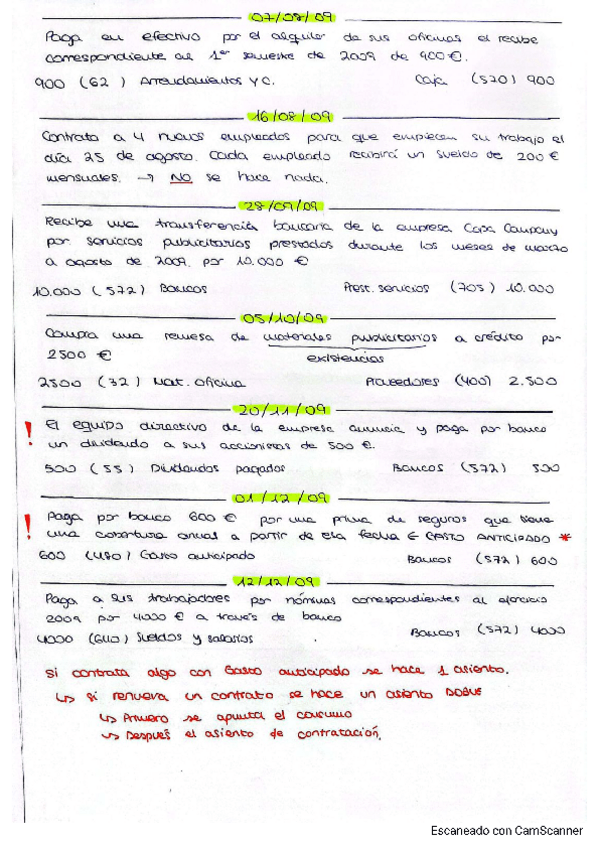 07/08/09
Paga en efectivo por el alquiler de sus oficinas el recibo
correspondiente al 1er semestre de 2009 de 900 €.
900 (62) Arrendamientos y C. Caja (570) 900
16/08/09
Contrata a 4 nuevos empleados para que empiecen su trabajo el
día 25 de agosto. Cada empleado recibirá un sueldo de 200 €
mensuales. → NO se hace nada.
28/09/09
Recibe una transferencia bancaria de la empresa Casa Company
por servicios publicitarios prestados durante los meses de marzo
a agosto de 2009. por 10.000 €
10.000 (572) Bancos Prest. servicios (705) 10.000
05/10/09
Compra una remesa de materiales publicitarios a crédito por
2500 € existencias
2500 (32) Mat. Oficina Proveedores (400) 2.500
20/11/09
! El equipo directivo de la empresa anuncia y paga por banco
un dividendo a sus accionistas de 500 €.
500 (55) Dividendos pagados Bancos (572) 500
01/12/09
! Paga por banco 600 € por una prima de seguros que tiene
una cobertura anual a partir de esa fecha € GASTO ANTICIPADO *
600 (480) Gasto anticipado Bancos (572) 600
12/12/09
Paga a sus trabajadores por nóminas correspondientes al ejercicio
2009 por 4000 € a través de banco
4000 (640) Sueldos y salarios Bancos (572) 4000
Si contrata algo con Gasto anticipado se hace 1 asiento.
↳ Si renueva un contrato se hace un asiento DOBLE
↳ Primero se apunta el consumo
↳ Después el asiento de contratación.
Escaneado con CamScanner